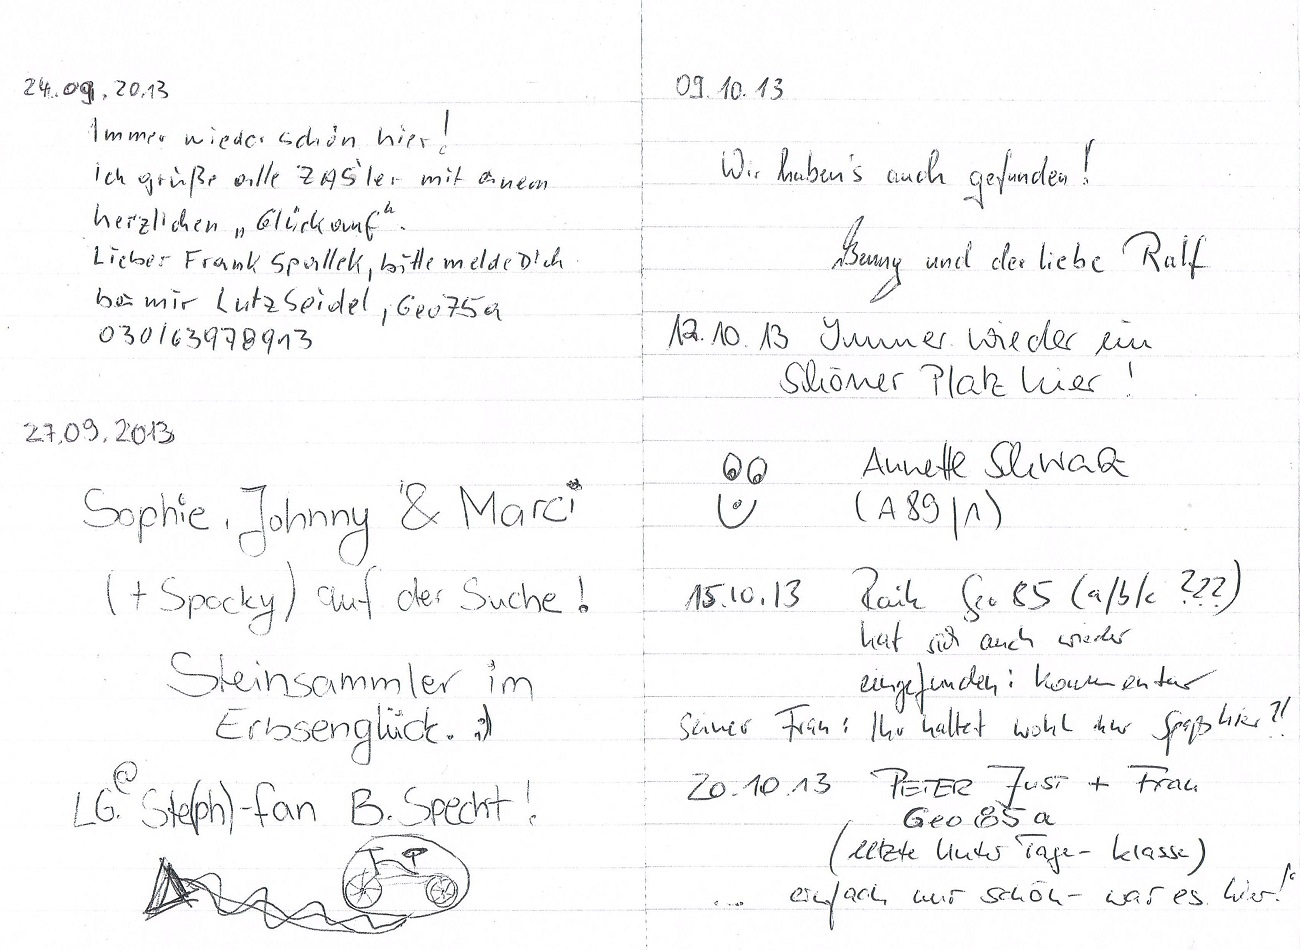 24.09.2013
Immer wieder schön hier!
ich grüße alle ZAS'ler mit einem
herzlichen „Glückauf“.
Lieber Frank Spallek, bitte melde Dich
bei mir Lutz Seidel, Geo75a
030/63978913
27.09.2013
Sophie, Johnny & Marci
(+ Spocky) auf der Suche!
Steinsammler im
Erbsenglück. :)
LG. @ Ste(ph)-fan B. Specht!
09.10.13
Wir haben's auch gefunden!
Benny und der liebe Ralf
12.10.13 Immer wieder ein
Schöner Platz hier!
Annette Schwarz
(A89/1)
15.10.13 Raik Geo 85 (a/b/c ???)
hat sich auch wieder
eingefunden: kommentar
seiner Frau: Ihr haltet wohl nur Spaß hier?!
20.10.13 PETER Just + Frau
Geo 85a
(letzte Unter Tage-klasse)
... einfach nur schön - war es hier!